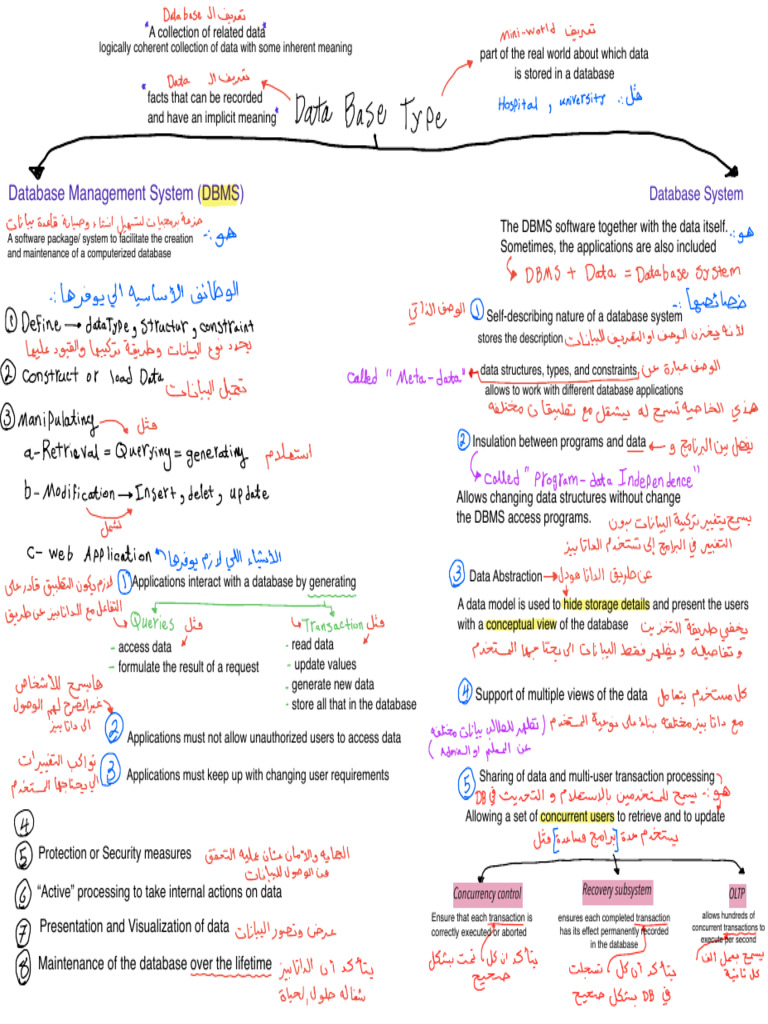 تعريف الـ Database
"A collection of related data"
logically coherent collection of data with some inherent meaning
تعريف mini-world
part of the real world about which data
is stored in a database
مثل: Hospital , university
تعريف الـ Data
"facts that can be recorded
and have an implicit meaning"
Data Base Type
Database Management System (DBMS)
هو :-
حزمة برمجيات لتسهيل انشاء وصيانة قاعدة بيانات
A software package/ system to facilitate the creation
and maintenance of a computerized database
الوظائف الأساسيه الي يوفرها :-
① Define → dataType, structur, constraint
يحدد نوع البيانات وطريقة تركيبها والقيود عليها
② Construct or load Data
تحميل البيانات
③ Manipulating مثل
a- Retrieval = Querying = generating استعلام
b- Modification → Insert, delet, update
تشمل
c- web Application الأشياء اللي لازم يوفرها
① Applications interact with a database by generating
لازم يكون التطبيق قادر على
التفاعل مع الداتابيز عن طريق
Queries مثل
- access data
- formulate the result of a request
Transaction مثل
- read data
- update values
- generate new data
- store all that in the database
② Applications must not allow unauthorized users to access data
مايسمح للأشخاص
غير المصرح لهم الوصول
الى داتا بيز
③ Applications must keep up with changing user requirements
تواكب التغييرات
الي يحتاجها المستخدم
④
⑤ Protection or Security measures
الحمايه والأمان عشان عمليه التحقق
من الوصول للبيانات
⑥ “Active” processing to take internal actions on data
⑦ Presentation and Visualization of data عرض وتصور البيانات
⑧ Maintenance of the database over the lifetime
يتأكد أن الداتابيز
شغاله طول الحياة
Database System
هو :-
The DBMS software together with the data itself.
Sometimes, the applications are also included
DBMS + Data = Database System
خصائصها :-
① Self-describing nature of a database system
الوصف الذاتي
stores the description لأنه يخزن الوصف او التعريف للبيانات
data structures, types, and constraints, الوصف عبارة عن
called "Meta-data"
allows to work with different database applications
هذي الخاصية تسمح له يشتغل مع تطبيقات مختلفه
② Insulation between programs and data
يفصل بين البرنامج و
called "Program-data Independence"
Allows changing data structures without change
the DBMS access programs.
يسمح بتغيير تركيبة البيانات بدون
التغيير في البرامج الي تستخدم الداتابيز
③ Data Abstraction → عن طريق الداتا مودل
A data model is used to hide storage details and present the users
with a conceptual view of the database
يخفي طريقة التخزين
وتفاصيله ويظهر فقط البيانات الي يحتاجها المستخدم
④ Support of multiple views of the data
كل مستخدم يتعامل
مع داتا بيز مختلفه بناءً على نوعية المستخدم
(تظهر للطالب بيانات مختلفه
عن المعلم او Admin)
⑤ Sharing of data and multi-user transaction processing
هو :- يسمح للمستخدمين بالاستعلام و التحديث في DB
Allowing a set of concurrent users to retrieve and to update
يستخدم عدة [برامج مساعدة] مثل
Concurrency control
Ensure that each transaction is
correctly executed or aborted
يتأكد ان كل تمت بشكل
صحيح
Recovery subsystem
ensures each completed transaction
has its effect permanently recorded
in the database
يتأكد أن كل تسجلت
في DB بشكل صحيح
OLTP
allows hundreds of
concurrent transactions to
execute per second
يسمح بعمل ألف
كل ثانية